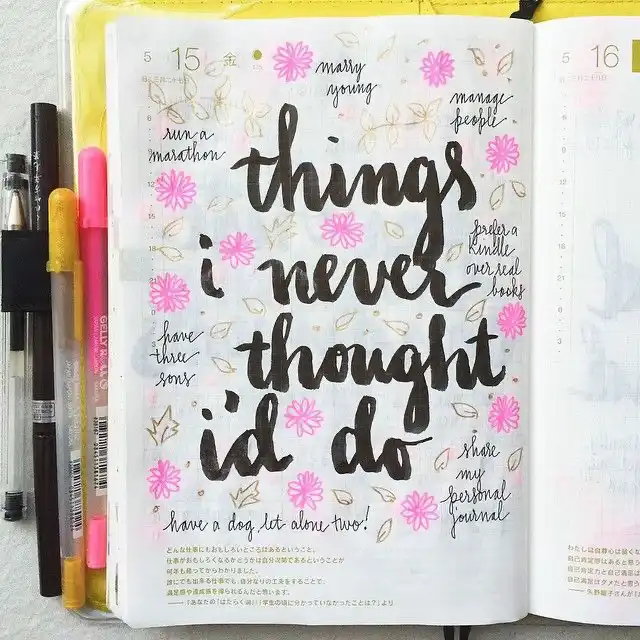 5 15 金
marry
young
manage
people
run a
marathon
things
i never
thought
i'd do
prefer a
Kindle
over real
books
have
three
sons
share
my
personal
journal
have a dog, let alone two!
どんな仕事にもおもしろいところはあるということ。
仕事がおもしろくなるかどうかは自分次第であるということが
何年も経ってからわかりました。
誰にでも出来る仕事でも、自分なりの工夫をすることで、
満足感や達成感を得られるんだと思います。
5 16
GELLY ROLL